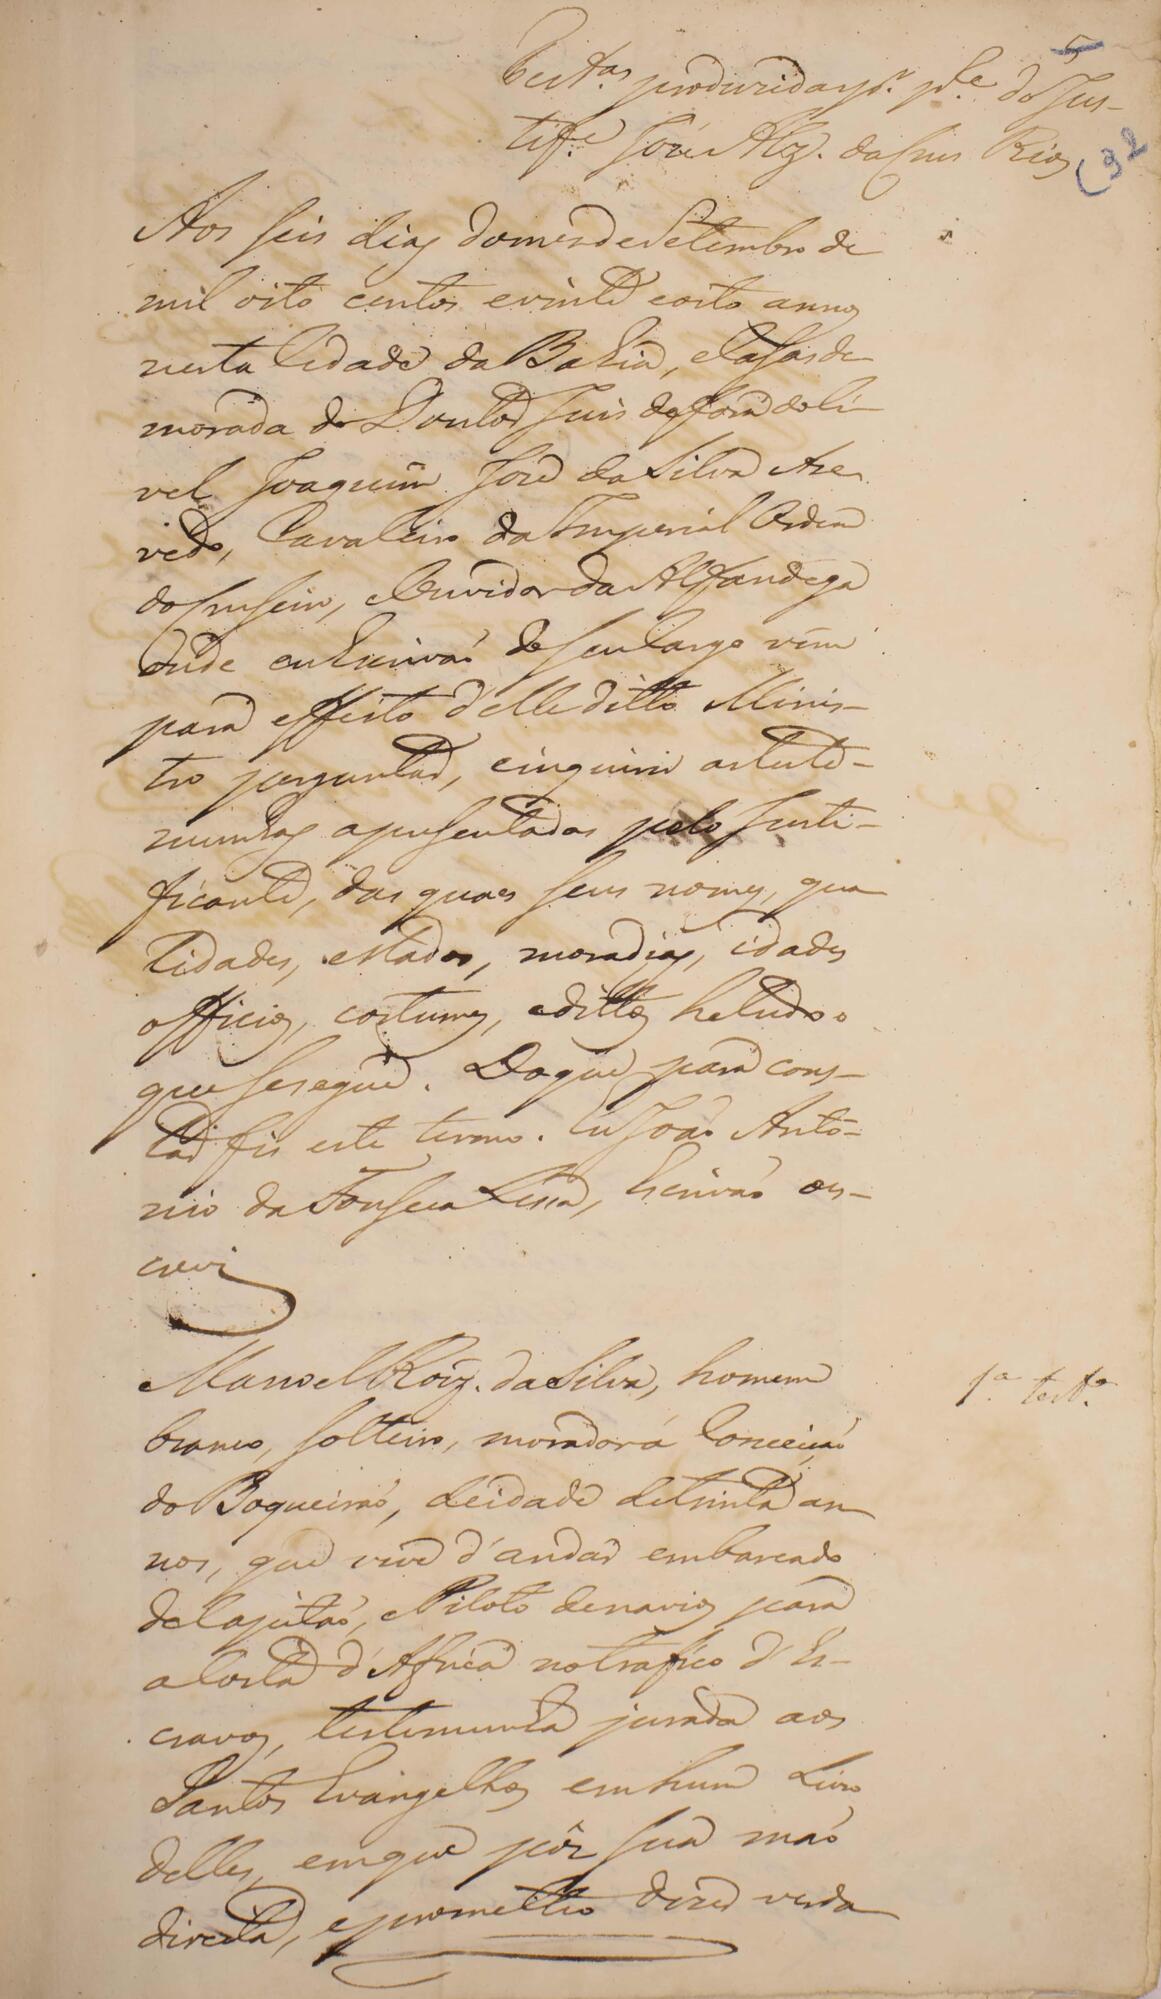 5
Test.as produzidas p.r p.te do Jus-
tif.e José Alz. da Crus Rios
(92
Aos seis dias do mes de Setembro de
mil oito centos e vinte e oito annos
nesta Cidade da Bahia, e Casas de
morada do Doutor Juis de fora do Ci-
vel Joaquim José da Silva Aze-
vedo, Cavaleiro da Imperial Ordem
do Cruseiro, e Ouvidor da Alfandega
Onde eu Escrivaõ de seu Cargo vim
para effeito d'elle ditto Minis-
tro perguntar, e inquirir as teste-
munhas apresentadas pelo Justi-
ficante, das quaes seus nomes, qua
lidades, estados, moradias, idades
officios, costumes, e dittos he tudo o
que se segue. Do que para cons-
tar fis este termo. Eu Joaõ Antô-
nio da Fonseca Lessa, Escrivaõ o es-
crevi
Manoel Roiz. da Silva, homem
branco, solteiro, morador á Conceiçaõ
do Boqueiraõ, de idade de trinta an
nos, que vive d'andar embarcado
de Capitaõ, e Piloto de navios para
a Costa d'Africa no trafico d'Es-
cravos, testemunha jurada aos
Santos Evangelhos em hum Livro
delles, em que pôz sua maõ
direita, e prometteo dizer verda
1.a test.a